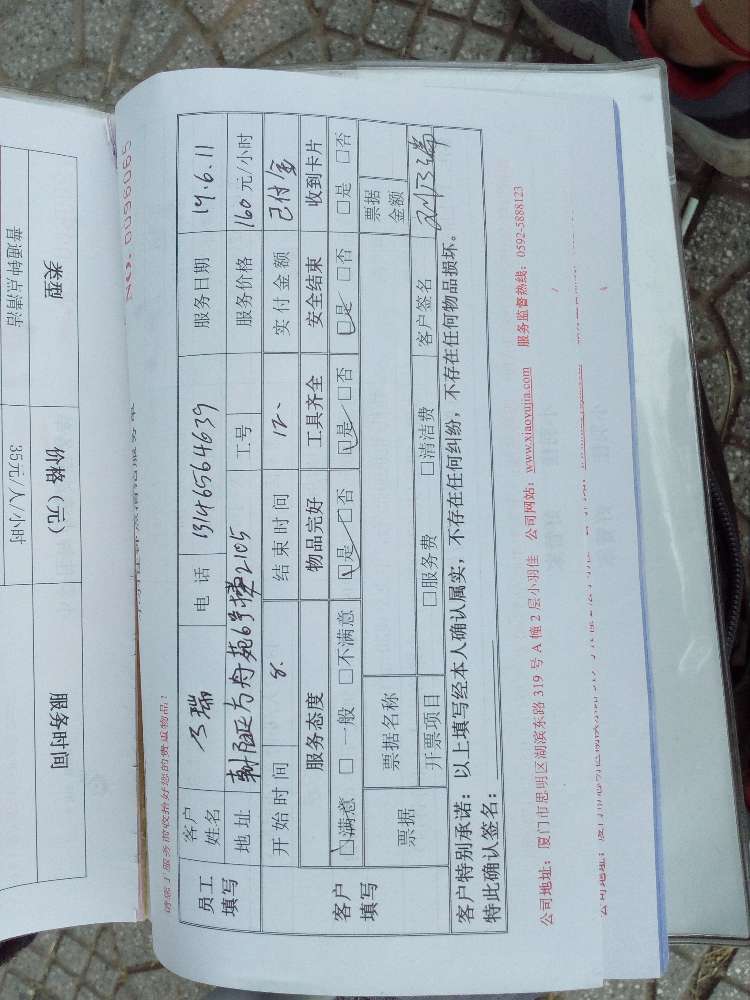 NO. 0096065
请您于服务前收拾好您的贵重物品!
员工填写 客户姓名 电话 13146564639 服务日期 19.6.11
地址 朝阳区方舟苑6号楼2105 工号 服务价格 160元/小时
客户填写 开始时间 8. 结束时间 12. 实付金额 已付金
服务态度 物品完好 工具齐全 安全结束 收到卡片
☑满意 □一般 □不满意 ☑是 □否 ☑是 □否 ☑是 □否 □是 □否
票据 票据名称 票据金额
开票项目 □服务费 □清洁费 客户签名
客户特别承诺:以上填写经本人确认属实,不存在任何纠纷,不存在任何物品损坏。
特此确认签名:
公司地址:厦门市思明区湖滨东路 319 号 A 幢 2 层小羽佳 公司网站:www.xiaoyujia.com 服务监督热线:0592-5888123
类型 价格(元) 服务时间
普通钟点清洁 35元/人/小时